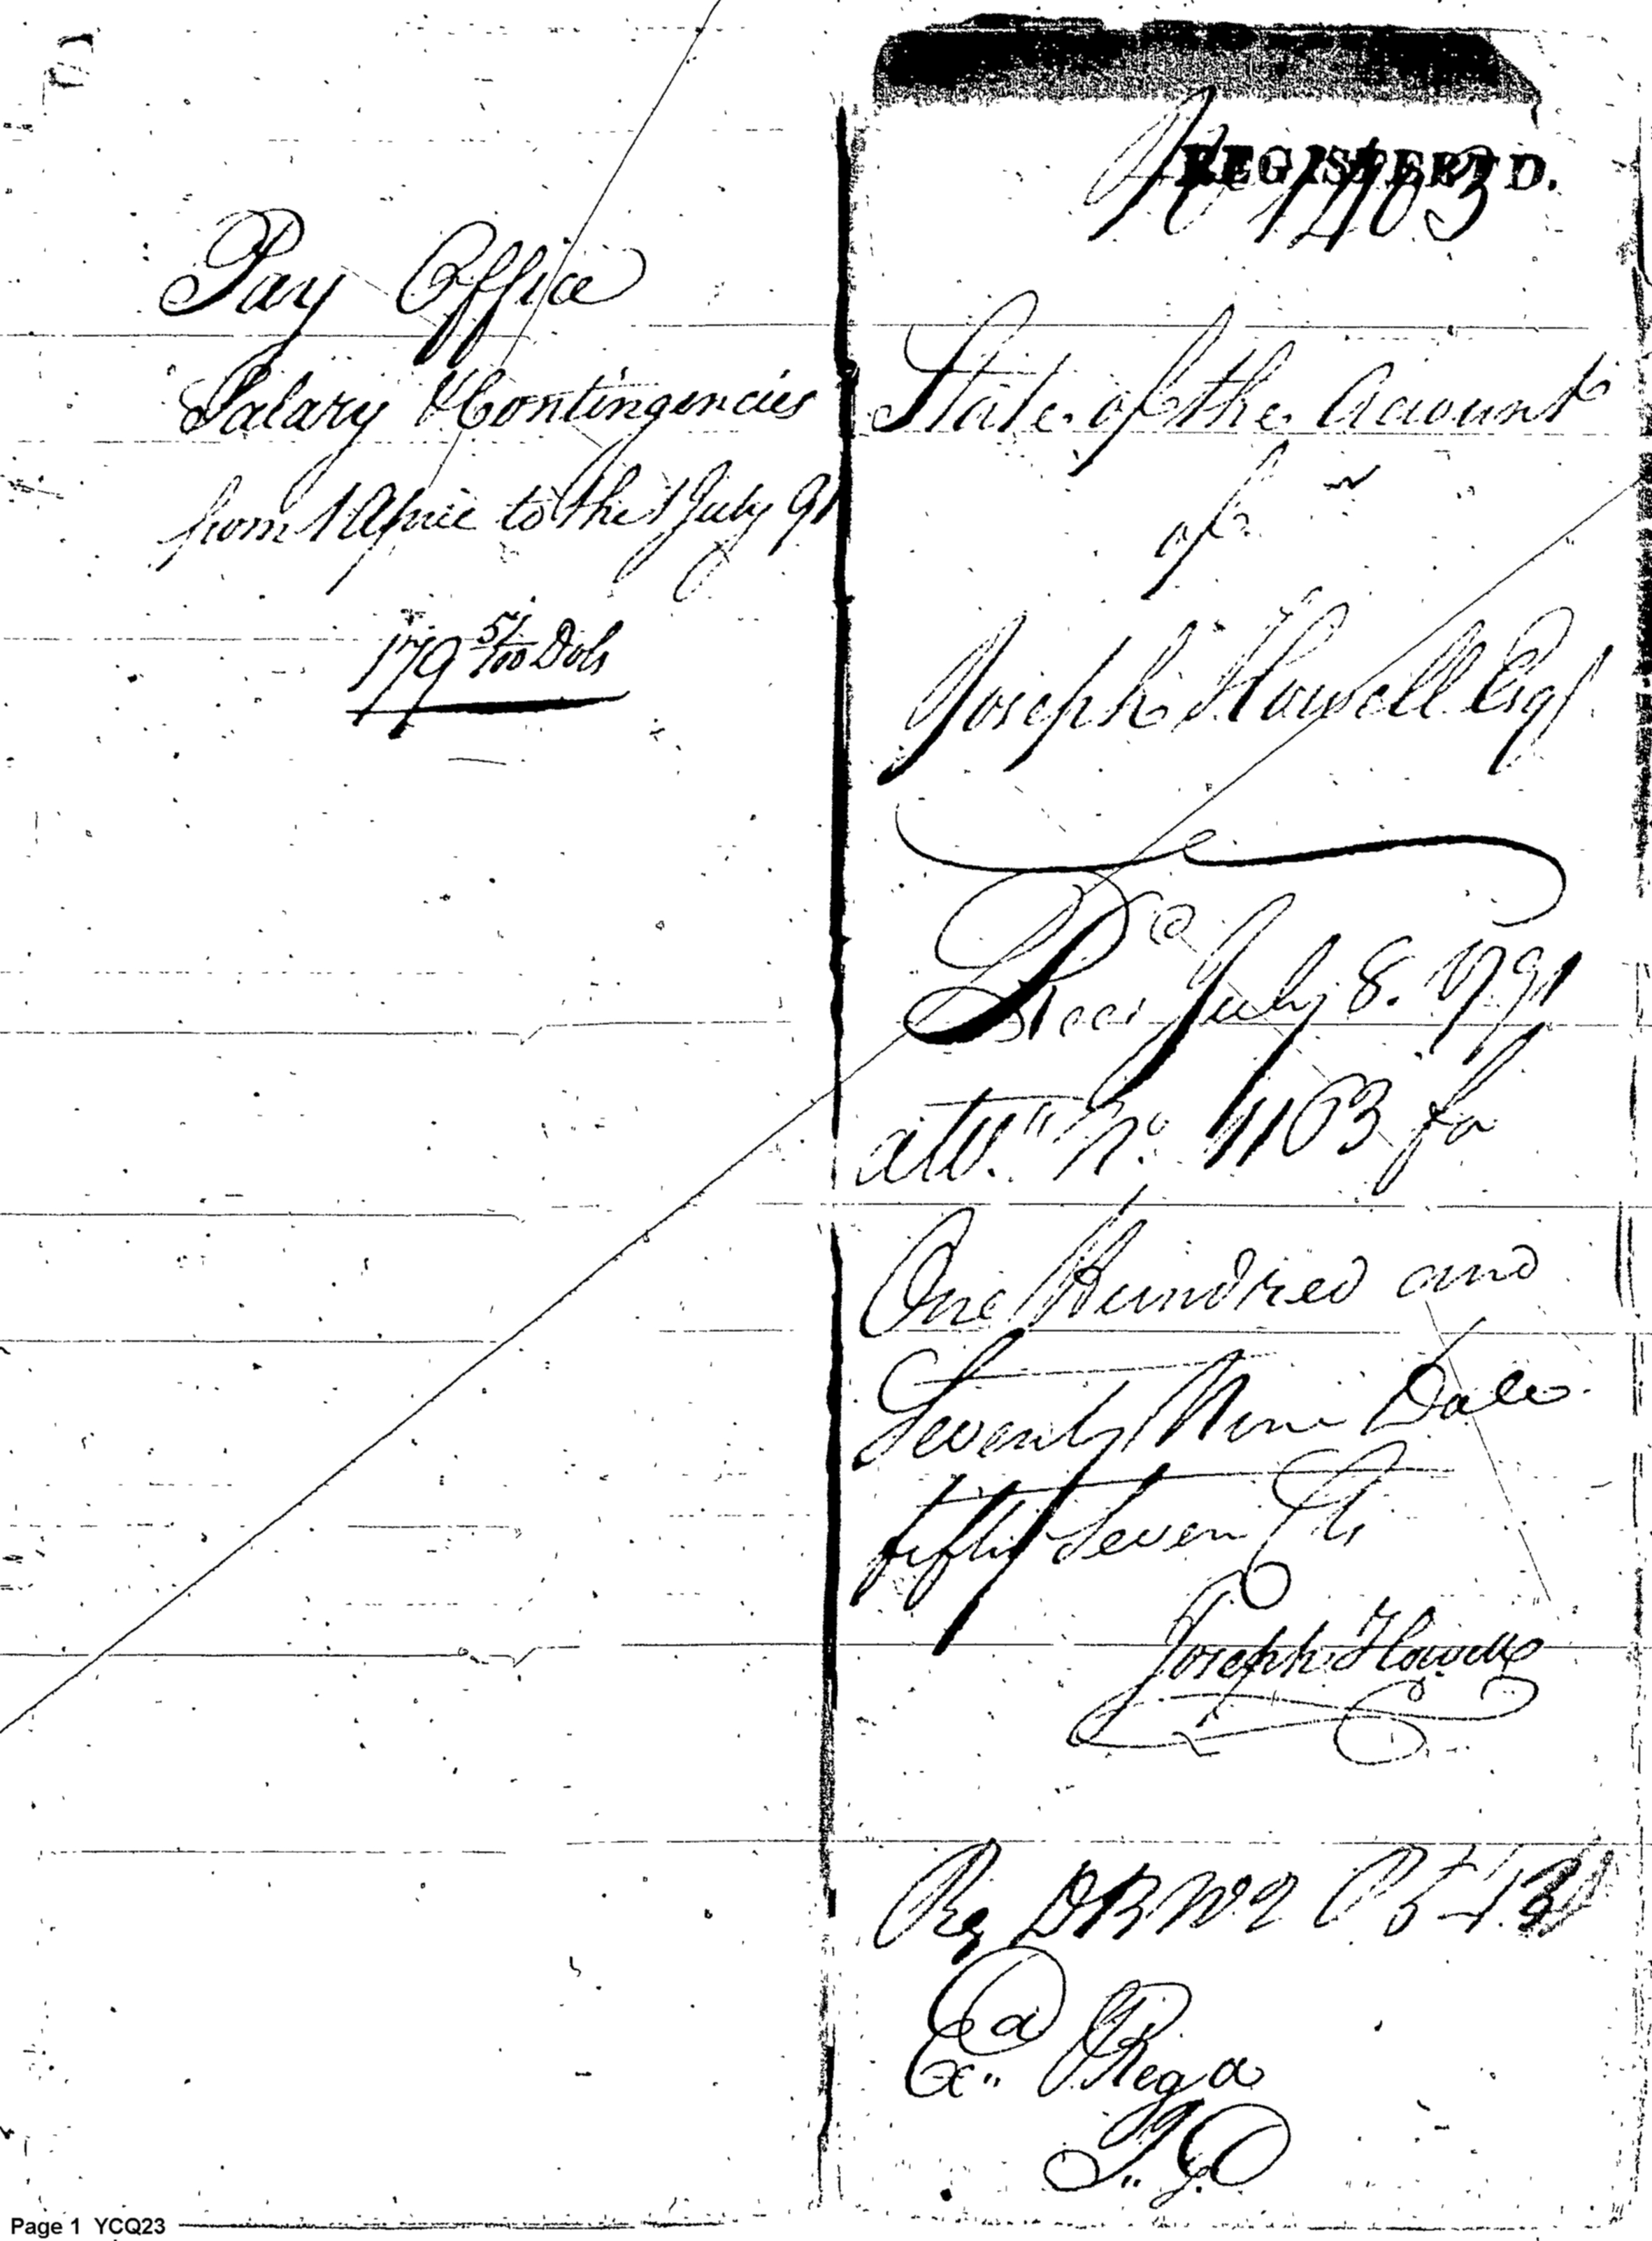 Pay Office
Salary & Contingencies
from 1 April to the 1 July 91
179 57/100 Dols
REGISTERED.
No 1403
State of the Account
of
Joseph Howell Esqr
July 8. 1791
No 1163 for
One Hundred and
Seventy Nine Dolls
fifty Seven Cts
Joseph Howell
Reg DB No 2
Exd Regd
Page 1 YCQ23